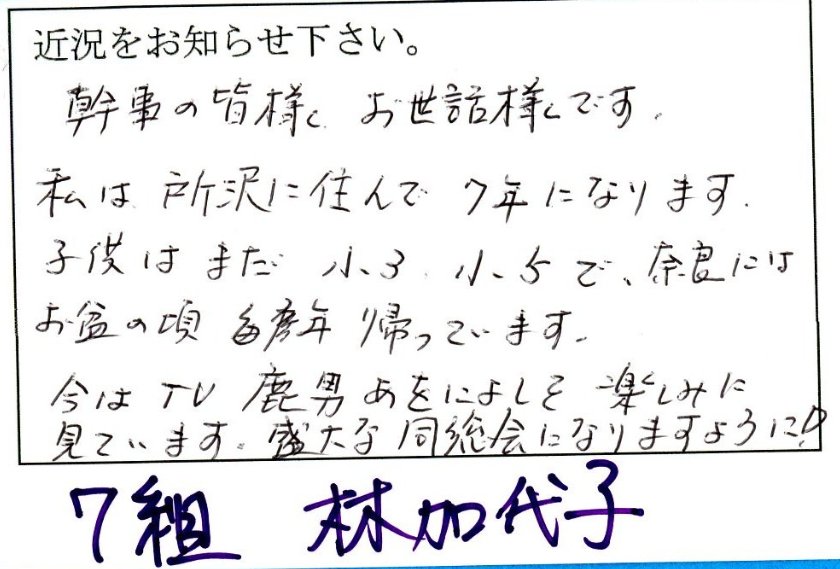 近況をお知らせ下さい。
幹事の皆様、お世話様です。
私は所沢に住んで7年になります。
子供はまだ小3、小5で、奈良には
お盆の頃毎年帰っています。
今はTV鹿男あをによしを楽しみに
見ています。盛大な同総会になりますように!
7組 林加代子